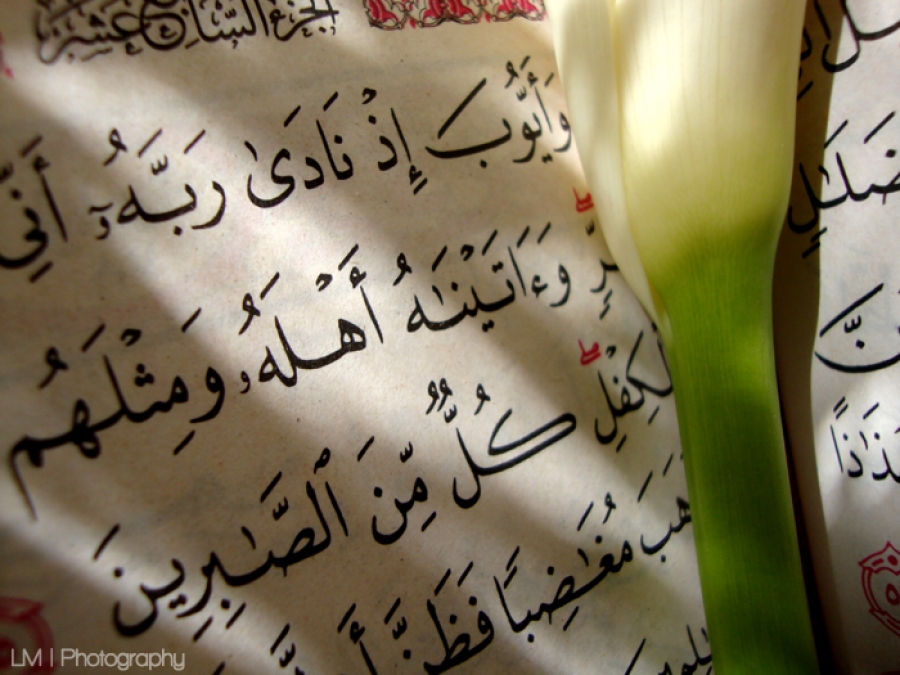 الجزء السابع عشر
وَأَيُّوبَ إِذْ نَادَىٰ رَبَّهُۥٓ أَنِّى
رٍّ ۖ وَءَاتَيْنَٰهُ أَهْلَهُۥ وَمِثْلَهُم
لْكِفْلِ ۖ كُلٌّ مِّنَ ٱلصَّٰبِرِينَ
هَبَ مُغَٰضِبًا فَظَنَّ
ضَلَٰلٍ
ذَٰذًا
LM | Photography